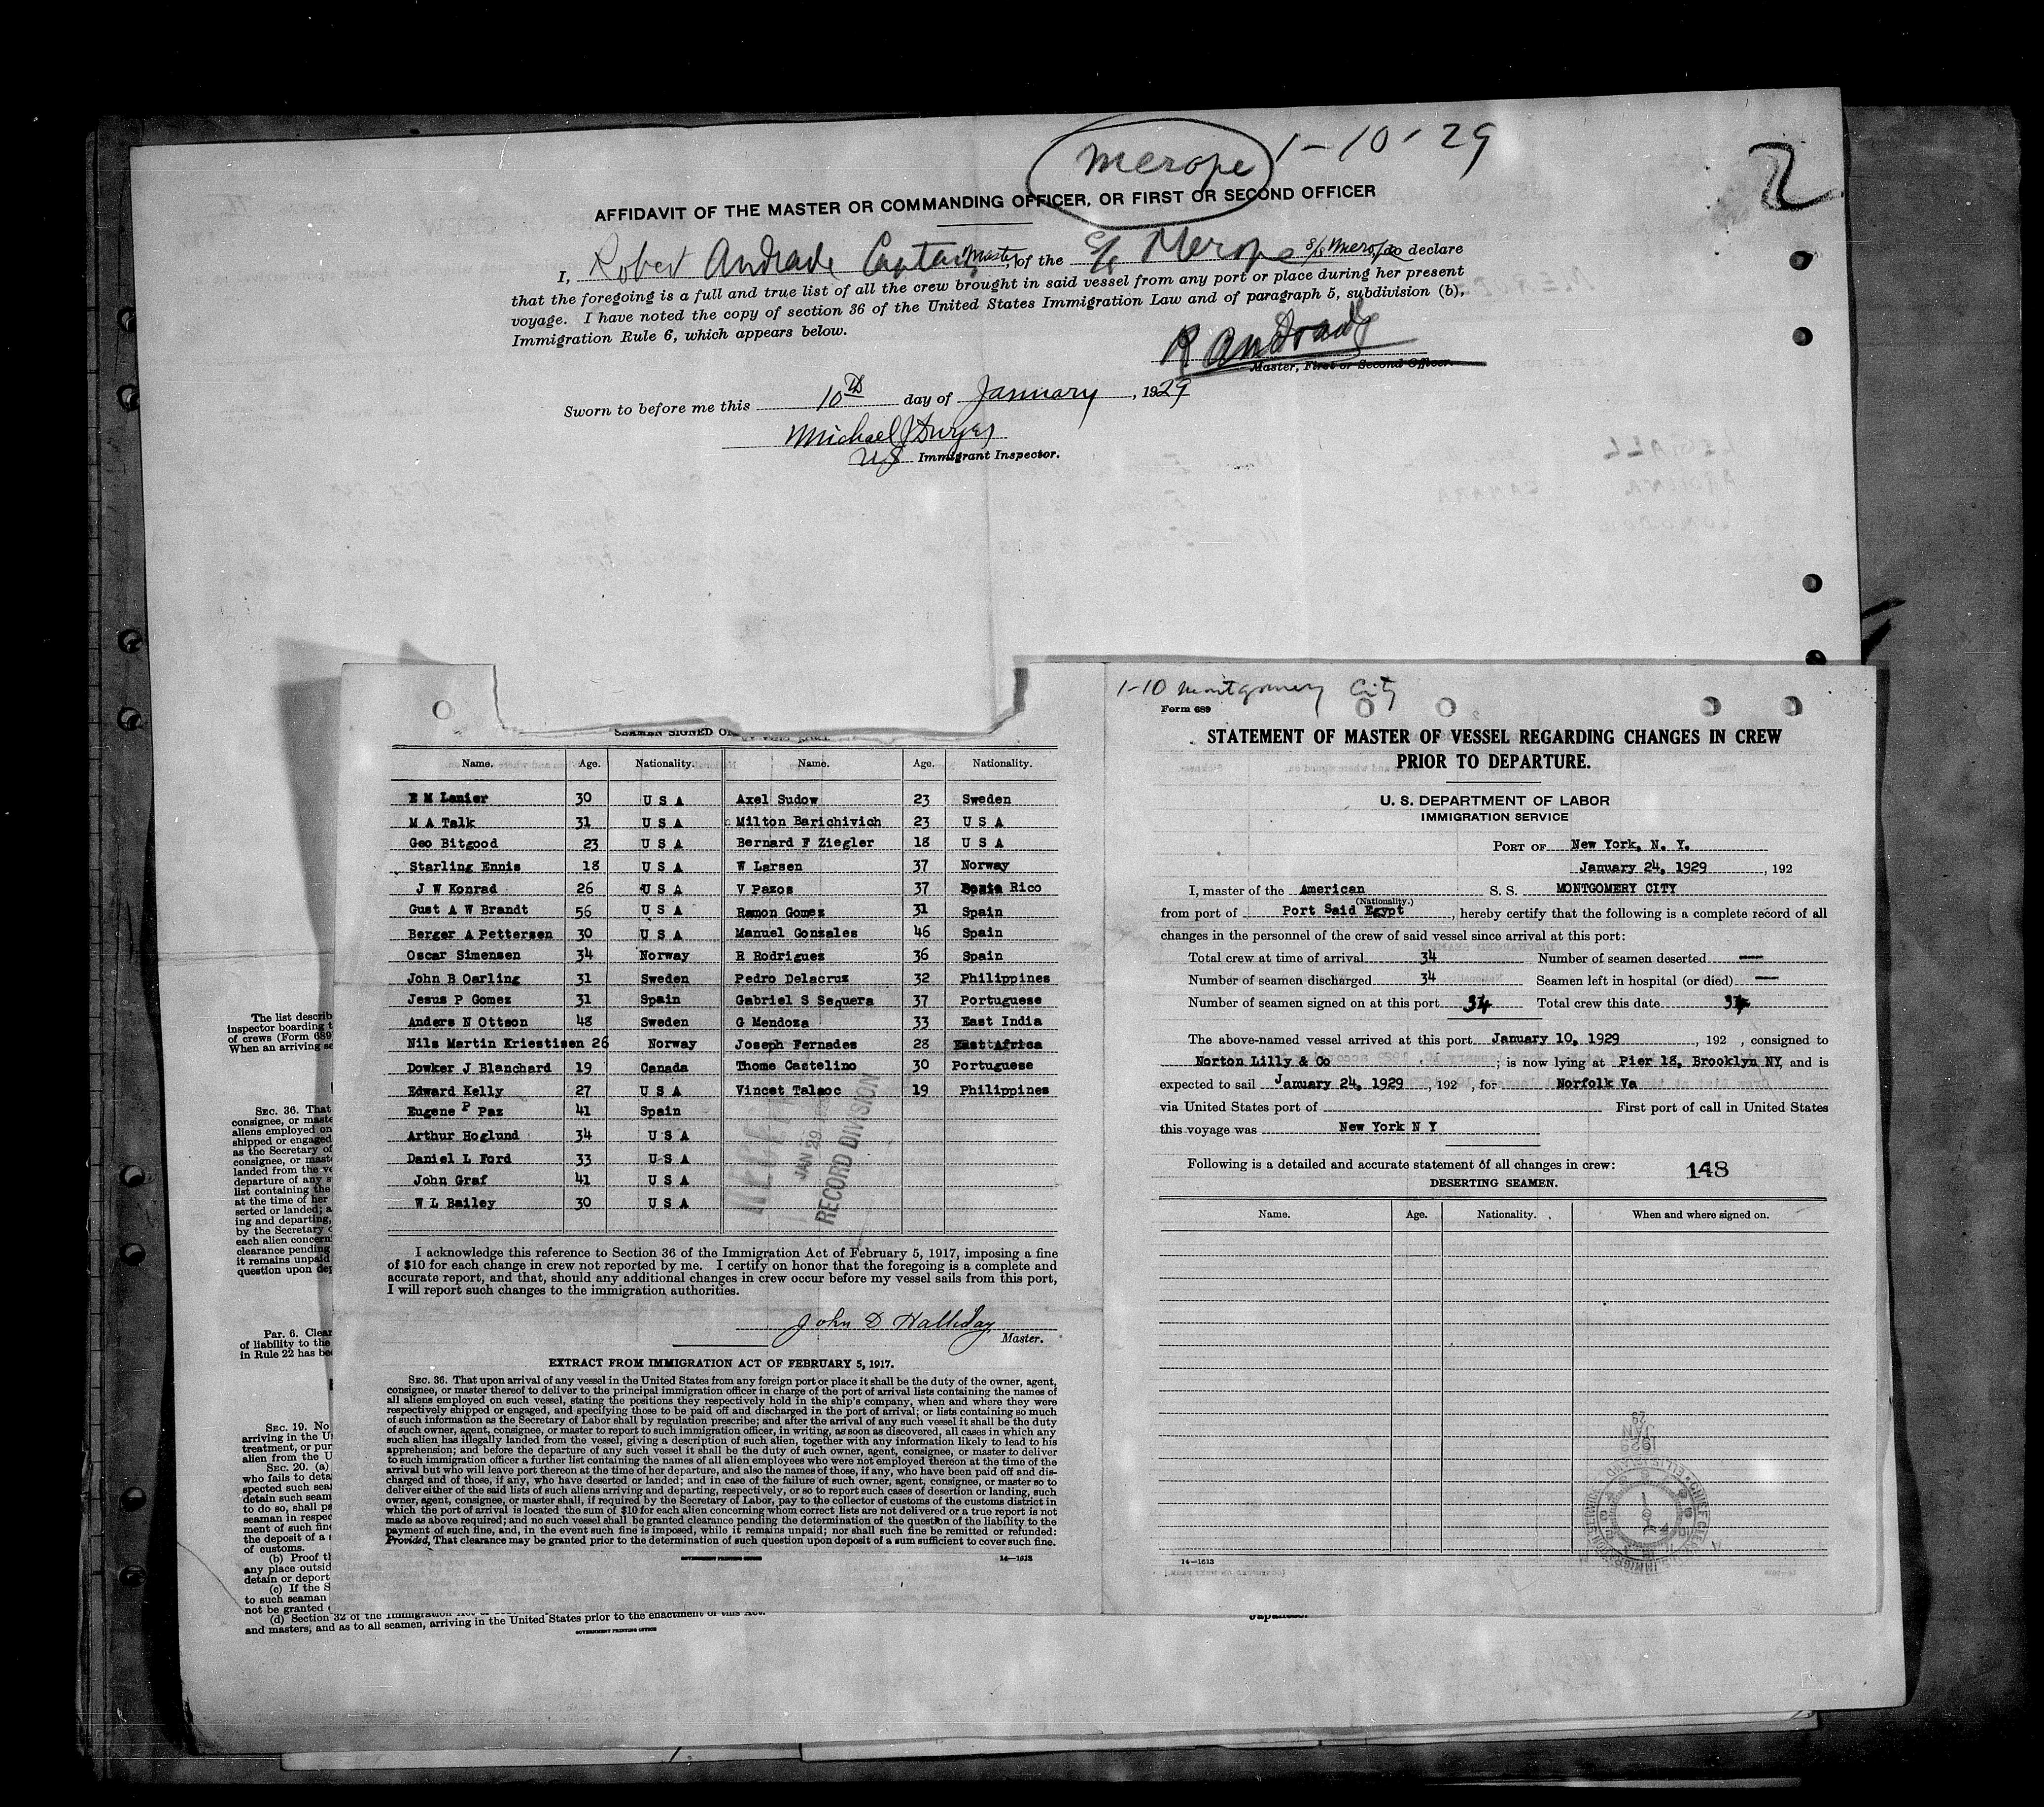 merope 1-10-29
2
AFFIDAVIT OF THE MASTER OR COMMANDING OFFICER, OR FIRST OR SECOND OFFICER
I, Robert Andrade Captain, Master, of the S/S Merope S/S Merope, do declare
that the foregoing is a full and true list of all the crew brought in said vessel from any port or place during her present
voyage. I have noted the copy of section 36 of the United States Immigration Law and of paragraph 5, subdivision (b),
Immigration Rule 6, which appears below.
R Andrade
Master, First or Second Officer.
Sworn to before me this 10th day of January, 1929
Michael J Dwyer
US Immigrant Inspector.
The list describ
inspector boarding t
of crews (Form 689
When an arriving se
SEC. 36. That
consignee, or maste
aliens employed on
shipped or engaged
as the Secretary of
consignee, or mast
landed from the ve
departure of any s
list containing the
at the time of her
serted or landed; a
ing and departing,
by the Secretary o
each alien concern
clearance pending
it remains unpaid
question upon dep
Par. 6. Clear
of liability to the
in Rule 22 has be
SEC. 19. No
arriving in the U
treatment, or pur
alien from the U
SEC. 20. (a)
who fails to deta
spected such seam
detain such seam
to do so, shall pa
seaman in respec
ment of such fin
the deposit of a s
of customs.
(b) Proof th
any place outsid
detain or deport
(c) If the S
to such seaman
not be granted
(d) Section 32 of the Immigration Act
and masters, and as to all seamen, arriving in the United States prior to the enactment of this Act.
GOVERNMENT PRINTING OFFICE
Japanese.
SEAMEN SIGNED ON
Name. Age. Nationality. Name. Age. Nationality.
E M Lanier 30 U S A Axel Sudow 23 Sweden
M A Talk 31 U S A Milton Barichivich 23 U S A
Geo Bitgood 23 U S A Bernard F Ziegler 18 U S A
Starling Ennis 18 U S A W Larsen 37 Norway
J W Konrad 26 U S A V Pazos 37 Porto Rico
Gust A W Brandt 56 U S A Ramon Gomez 31 Spain
Berger A Pettersen 30 U S A Manuel Gonzales 46 Spain
Oscar Simensen 34 Norway R Rodriguez 36 Spain
John B Oarling 31 Sweden Pedro Delacruz 32 Philippines
Jesus P Gomez 31 Spain Gabriel S Sequera 37 Portuguese
Anders N Ottson 48 Sweden G Mendoza 33 East India
Nils Martin Kriestisen 26 Norway Joseph Fernades 28 East Africa
Dowker J Blanchard 19 Canada Thome Castelino 30 Portuguese
Edward Kelly 27 U S A Vincet Talaoc 19 Philippines
Eugene P Paz 41 Spain
Arthur Hoglund 34 U S A
Daniel L Ford 33 U S A
John Graf 41 U S A
W L Bailey 30 U S A
JAN 29
RECORD DIVISION
I acknowledge this reference to Section 36 of the Immigration Act of February 5, 1917, imposing a fine
of $10 for each change in crew not reported by me. I certify on honor that the foregoing is a complete and
accurate report, and that, should any additional changes in crew occur before my vessel sails from this port,
I will report such changes to the immigration authorities.
John D Halliday
Master.
EXTRACT FROM IMMIGRATION ACT OF FEBRUARY 5, 1917.
SEC. 36. That upon arrival of any vessel in the United States from any foreign port or place it shall be the duty of the owner, agent,
consignee, or master thereof to deliver to the principal immigration officer in charge of the port of arrival lists containing the names of
all aliens employed on such vessel, stating the positions they respectively hold in the ship's company, when and where they were
respectively shipped or engaged, and specifying those to be paid off and discharged in the port of arrival; or lists containing so much
of such information as the Secretary of Labor shall by regulation prescribe; and after the arrival of any such vessel it shall be the duty
of such owner, agent, consignee, or master to report to such immigration officer, in writing, as soon as discovered, all cases in which any
such alien has illegally landed from the vessel, giving a description of such alien, together with any information likely to lead to his
apprehension; and before the departure of any such vessel it shall be the duty of such owner, agent, consignee, or master to deliver
to such immigration officer a further list containing the names of all alien employees who were not employed thereon at the time of the
arrival but who will leave port thereon at the time of her departure, and also the names of those, if any, who have been paid off and dis-
charged and of those, if any, who have deserted or landed; and in case of the failure of such owner, agent, consignee, or master so to
deliver either of the said lists of such aliens arriving and departing, respectively, or so to report such cases of desertion or landing, such
owner, agent, consignee, or master shall, if required by the Secretary of Labor, pay to the collector of customs of the customs district in
which the port of arrival is located the sum of $10 for each alien concerning whom correct lists are not delivered or a true report is not
made as above required; and no such vessel shall be granted clearance pending the determination of the question of the liability to the
payment of such fine, and, in the event such fine is imposed, while it remains unpaid; nor shall such fine be remitted or refunded:
Provided, That clearance may be granted prior to the determination of such question upon deposit of a sum sufficient to cover such fine.
GOVERNMENT PRINTING OFFICE 14—1613
1-10 Montgomery City
Form 689
STATEMENT OF MASTER OF VESSEL REGARDING CHANGES IN CREW
PRIOR TO DEPARTURE.
U. S. DEPARTMENT OF LABOR
IMMIGRATION SERVICE
PORT OF New York, N. Y.
January 24, 1929, 192
I, master of the American S. S. MONTGOMERY CITY
(Nationality.)
from port of Port Said Egypt, hereby certify that the following is a complete record of all
changes in the personnel of the crew of said vessel since arrival at this port:
Total crew at time of arrival 34 Number of seamen deserted —
Number of seamen discharged 34 Seamen left in hospital (or died) —
Number of seamen signed on at this port 34 Total crew this date 34
The above-named vessel arrived at this port January 10, 1929, 192 , consigned to
Norton Lilly & Co ; is now lying at Pier 18, Brooklyn NY, and is
expected to sail January 24, 1929, 192 , for Norfolk Va
via United States port of First port of call in United States
this voyage was New York N Y
Following is a detailed and accurate statement of all changes in crew: 148
DESERTING SEAMEN.
Name. Age. Nationality. When and where signed on.
14—1613